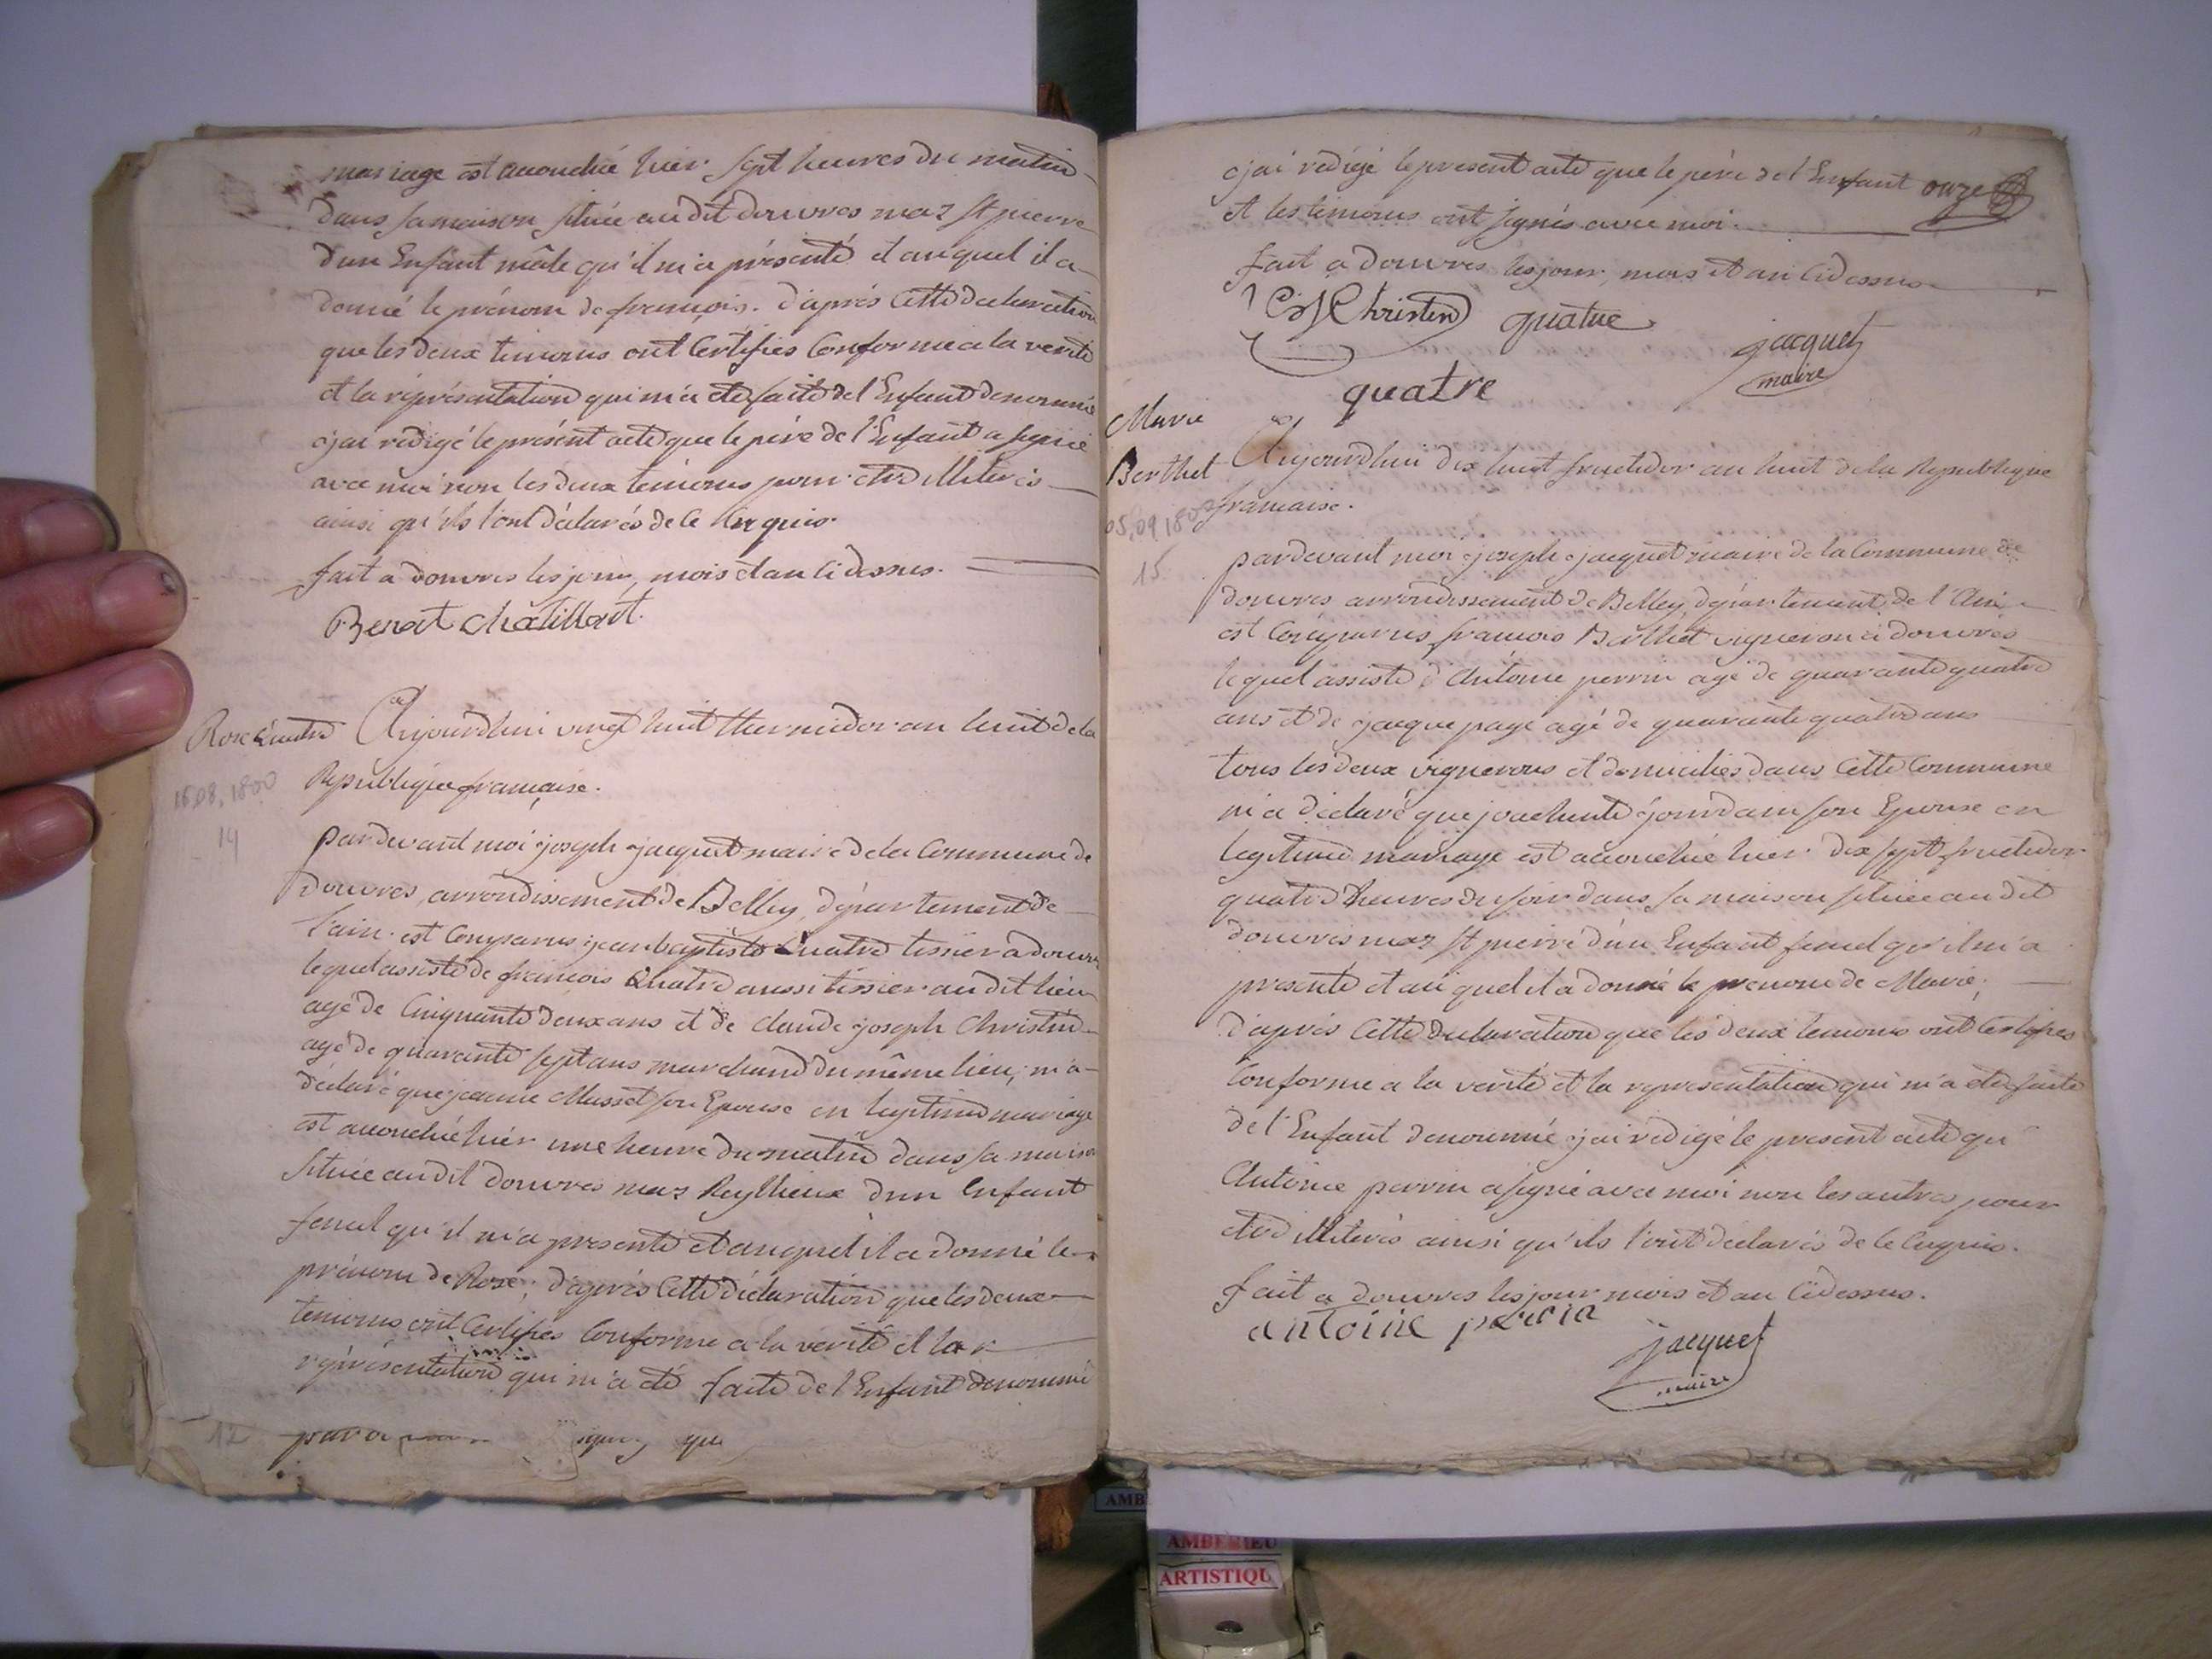 mariage est accouchée hier sept heures du matin
dans sa maison située audit douvres maz st pierre
d'un Enfant mâle qu'il m'a présenté et auquel il a
donné le prénom de françois. d'après cette declaration
que les deux temoins ont Certifiés Conforme a la verité
et la répresentation qui m'a eté faite de l'Enfant denommé
j'ai redigé le présent acte que le pére de l'Enfant a signé
avec moi non les deux temoins pour etre illiterés
ainsi qu'ils l'ont déclarés de ce Enquis.
fait a douvres les jour, mois et an cidessus.
Benoit chatillont
Rose Quatre
16,08,1800
14
Aujourdhui vingt huit thermidor an huit de la
Republique française.
pardevant moi joseph jacquet maire de la Commune de
douvres, arrondissement de Belley, département de
l'ain. est Comparus jean baptiste Quatre tissier a douvres
lequel assisté de françois Quatre aussi tissier audit lieu
agé de Cinquante deux ans et de claude joseph Christin
agé de quarante sept ans marchand du même lieu; m'a
déclaré que jeanne Musset son Epouse en legitime mariage
est accouchée hier une heure du matin dans sa maison
située audit douvres maz Reylieux d'un Enfant
femel qu'il m'a presenté et auquel il a donné le
prénom de Rose; d'aprés Cette déclaration que les deux
temoins ont Certifiés Conforme a la verité et la r
répresentation qui m'a eté faite de l'Enfant denommé
12
que
j'ai redigé le present acte que le pére de l'Enfant onze
et les temoins ont signés avec moi.
fait a douvres les jour, mois et an Cidessus
C J Christin quatre
jacquet
maire
quatre
Marie
Berthet
05,09,1800
15
Aujourdhui dix huit fructidor an huit de la Republique
francaise.
pardevant moi joseph jacquet maire de la Commune de
douvres arrondissement de Belley, département de l'Ain
est Comparus françois Berthet vigneron a douvres
lequel assisté d'Antoine perrin agé de quarante quatre
ans et de jacque page agé de quarante quatre ans
tous les deux vignerons et domiciliés dans Cette Commune
m'a déclaré que jourdain son Epouse en
legitime mariage est accouchée hier dix sept fructidor
quatre heures du soir dans sa maison située audit
douvres maz st pierre d'un Enfant femel qu'il m'a
presenté et au quel il a donné le prenom de Marie;
d'aprés Cette declaration que les deux temoins ont Certifiés
Conforme a la verité et la representation qui m'a eté faite
de l'Enfant denommé j'ai redigé le present acte qu'
Antoine perrin a signé avec moi non les autres pour
etre illiterés ainsi qu'ils l'ont déclarés de ce Enquis.
fait a douvres les jour mois et an Cidessus.
antoine perrin
jacquet
maire
AMB
AMBERIEU
ARTISTIQU